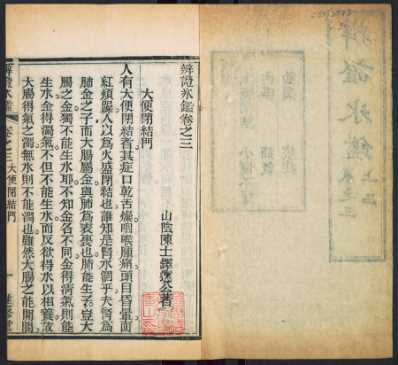 辨證氷鑑卷之三
山陰陳士鐸遠公著
大便閉結門
人有大便閉結者其症口乾舌燥咽喉腫痛頭目昏暈面
紅煩躁人以為火盛閉結也誰知是腎水涸乎夫腎為
肺金之子而大腸屬金與肺為表裏也肺能生子豈大
腸之金獨不能生水耶不知金各不同金得清氣則能
生水金得濁氣不但不能生水而反欲得水以相養故
大腸得氣之濁無水則不能潤也雖然大腸之能開闔
辨證氷鑑
卷之三
大便閉結門
一
辨證氷鑑
卷之三